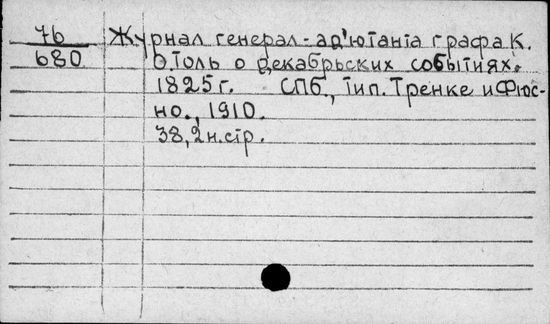 76 Журнал генерал-ад'ютанта графа К.
680 Ѳ.Толь о декабрьских событиях.
1825г. СПб., тип. Тренке и Фюс-
но., 1910.
38,2н.стр.